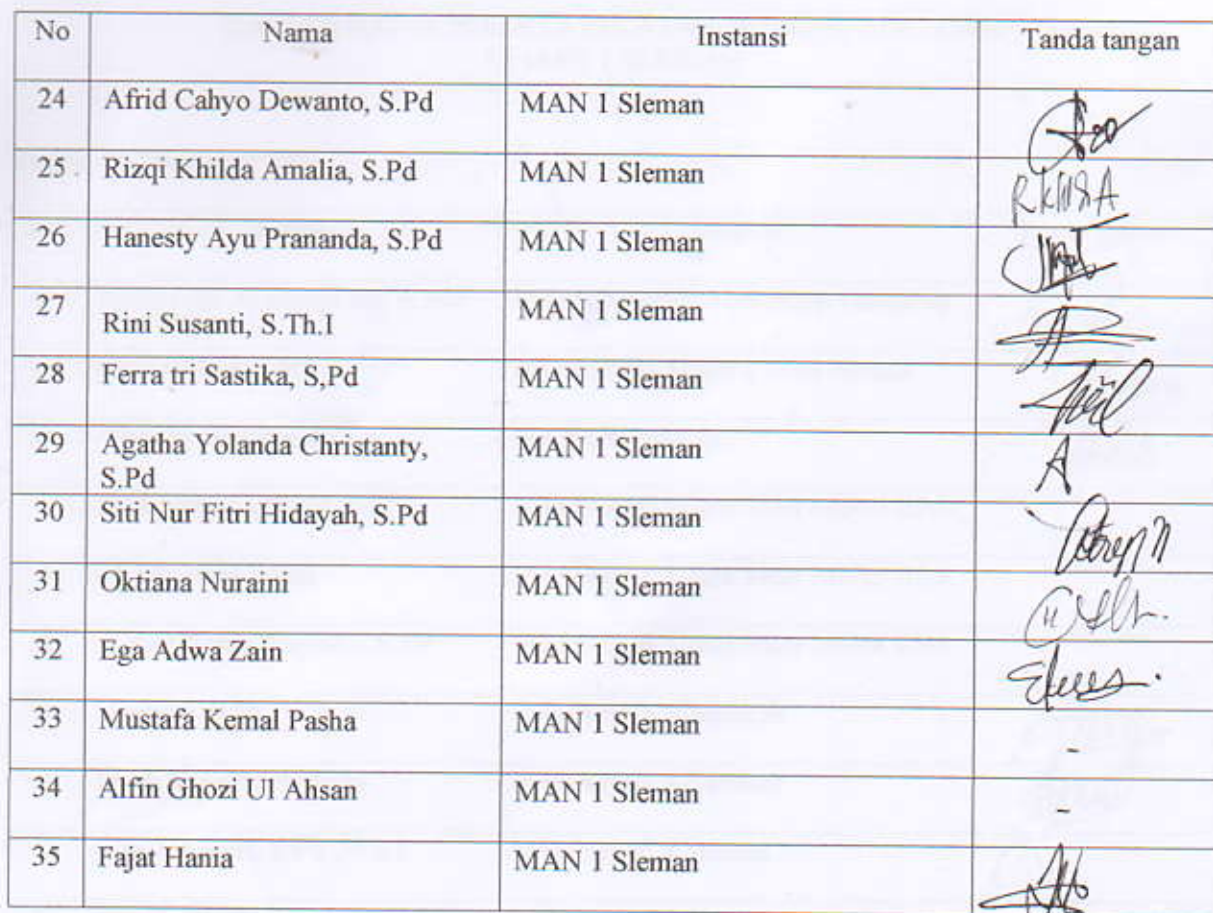 No Nama Instansi Tanda tangan
24 Afrid Cahyo Dewanto, S.Pd MAN 1 Sleman
25 Rizqi Khilda Amalia, S.Pd MAN 1 Sleman
26 Hanesty Ayu Prananda, S.Pd MAN 1 Sleman
27 Rini Susanti, S.Th.I MAN 1 Sleman
28 Ferra tri Sastika, S,Pd MAN 1 Sleman
29 Agatha Yolanda Christanty, MAN 1 Sleman A
S.Pd
30 Siti Nur Fitri Hidayah, S.Pd MAN 1 Sleman
31 Oktiana Nuraini MAN 1 Sleman
32 Ega Adwa Zain MAN 1 Sleman
33 Mustafa Kemal Pasha MAN 1 Sleman -
34 Alfin Ghozi Ul Ahsan MAN 1 Sleman -
35 Fajat Hania MAN 1 Sleman